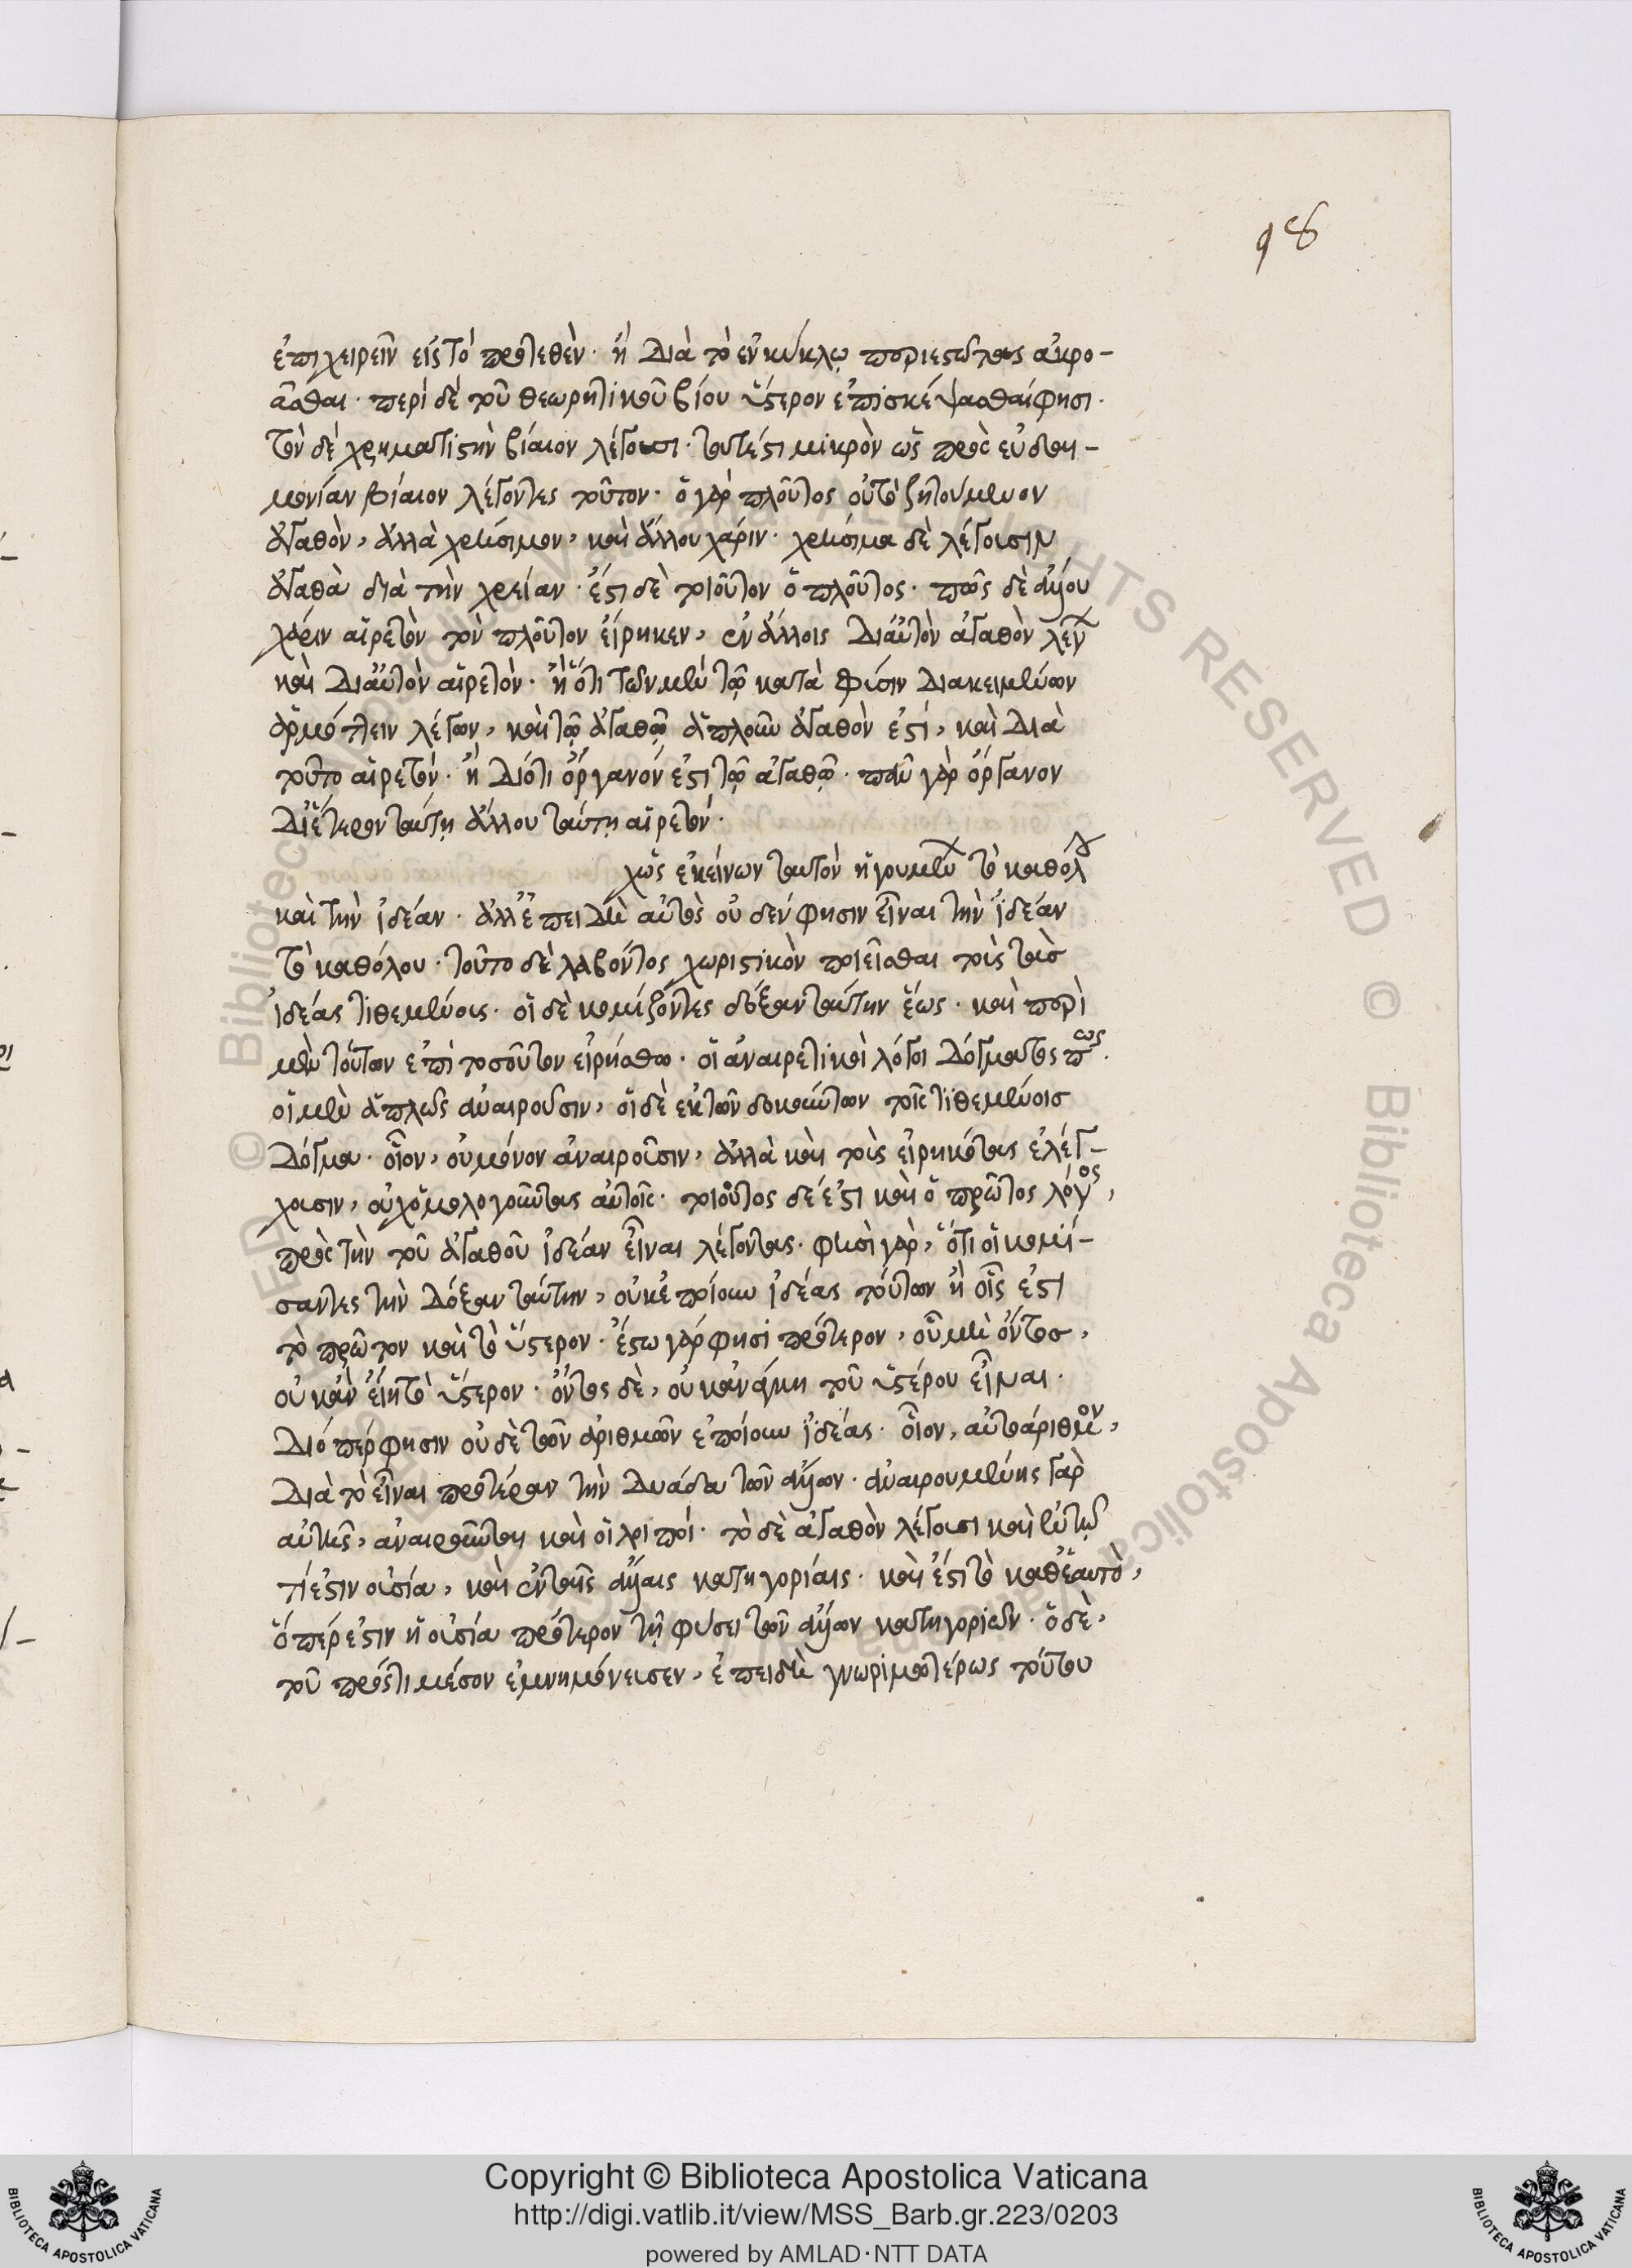 98
ἐπιχειρεῖν εἰς τὸ προτεθέν· ἢ διὰ τὸ ἐν κύκλῳ περιεστῶτας ἀκρο-
ᾶσθαι· περὶ δὲ τοῦ θεωρητικοῦ βίου ὕστερον ἐπισκέψασθαί φησι·
τὸν δὲ χρηματιστὴν βίαιον λέγουσι· τουτέστι μικρὸν ὡς πρὸς εὐδαι-
μονίαν βίαιον λέγοντες τοῦτον· ὁ γὰρ πλοῦτος οὐ τὸ ζητούμενον
ἀγαθὸν, ἀλλὰ χρήσιμον, καὶ ἄλλου χάριν· χρήσιμα δὲ λέγουσιν
ἀγαθὰ διὰ τὴν χρείαν· ἔστι δὲ τοιοῦτον ὁ πλοῦτος· πῶς δὲ ἄλλου
χάριν αἱρετὸν τὸν πλοῦτον εἴρηκεν, ἐν ἄλλοις δι' αὐτὸν ἀγαθὸν λέγων
καὶ δι' αὐτὸν αἱρετὸν· ἢ ὅτι τῶν μὲν τῷ κατὰ φύσιν διακειμένων
ἁρμόττειν λέγων, καὶ τῷ ἀγαθῷ ἁπλοῦν ἀγαθὸν ἐστί, καὶ διὰ
τοῦτο αἱρετόν· ἢ διότι ὄργανόν ἐστι τῷ ἀγαθῷ· πᾶν γὰρ ὄργανον
δι' ἕτερον ταύτῃ ἄλλου ταύτῃ αἱρετόν·
χῶς ἐκείνων ταυτὸν ἡγουμεν τὸ καθόλου
καὶ τὴν ἰδέαν· ἀλλ' ἐπειδὴ αὐτὸς οὐδέν φησιν εἶναι τὴν ἰδέαν
τὸ καθόλου· τοῦτο δὲ λαβόντος χωριστικὸν ποιεῖσθαι τοὺς τὰς
ἰδέας τιθεμένοις· οἱ δὲ κομίζοντες δόξαν ταύτην ἕως· καὶ περὶ
μὲν τούτων ἐπὶ τοσοῦτον εἰρήσθω· οἱ ἀναιρετικοὶ λόγοι δόγματος πως·
οἱ μὲν ἁπλῶς ἀναιροῦσιν, οἱ δὲ ἐκ τῶν δοκούντων τοῖς τιθεμένοις
δόγμα· οἷον, οὐ μόνον ἀναιροῦσιν, ἀλλὰ καὶ τοὺς εἰρηκότας ἐλέγ-
χουσιν, οὐχ ὁμολογοῦντας αὐτοῖς· τοιοῦτος δέ ἐστι καὶ ὁ πρῶτος λόγος,
πρὸς τὴν τοῦ ἀγαθοῦ ἰδέαν εἶναι λέγοντας· φησὶ γὰρ, ὅτι οἱ κομί-
σαντες τὴν δόξαν ταύτην, οὐκ ἐποίουν ἰδέας τούτων ἢ οἷς ἐστι
τὸ πρῶτον καὶ τὸ ὕστερον· ἔστω γάρ φησι πρότερον, οὗ μὴ ὄντος,
οὐκ ἂν εἴη τὸ ὕστερον· ὄντος δὲ, οὐκ ἀνάγκη τοῦ ὑστέρου εἶναι·
διόπέρ φησιν οὐδὲ τῶν ἀριθμῶν ἐποίουν ἰδέας· οἷον, αὐτοάριθμον,
διὰ τὸ εἶναι προτέραν τὴν δυάδα τῶν ἄλλων· ἀναιρουμένης γὰρ
αὐτῆς, ἀναιροῦνται καὶ οἱ λοιποί· τὸ δὲ ἀγαθὸν λέγουσι καὶ ἐν τῷ
τί ἐστιν οὐσία, καὶ ἐν ταῖς ἄλλαις κατηγορίαις· καὶ ἔστι τὸ καθ' ἑαυτὸ,
ὅπέρ ἐστιν ἡ οὐσία πρότερον τῇ φύσει τῶν ἄλλων κατηγοριῶν· ὁ δὲ,
τοῦ πρός τι μέσον ἐμνημόνευσεν, ἐπειδὴ γνωριμωτέρως τούτου
Copyright © Biblioteca Apostolica Vaticana
http://digi.vatlib.it/view/MSS_Barb.gr.223/0203
powered by AMLAD·NTT DATA